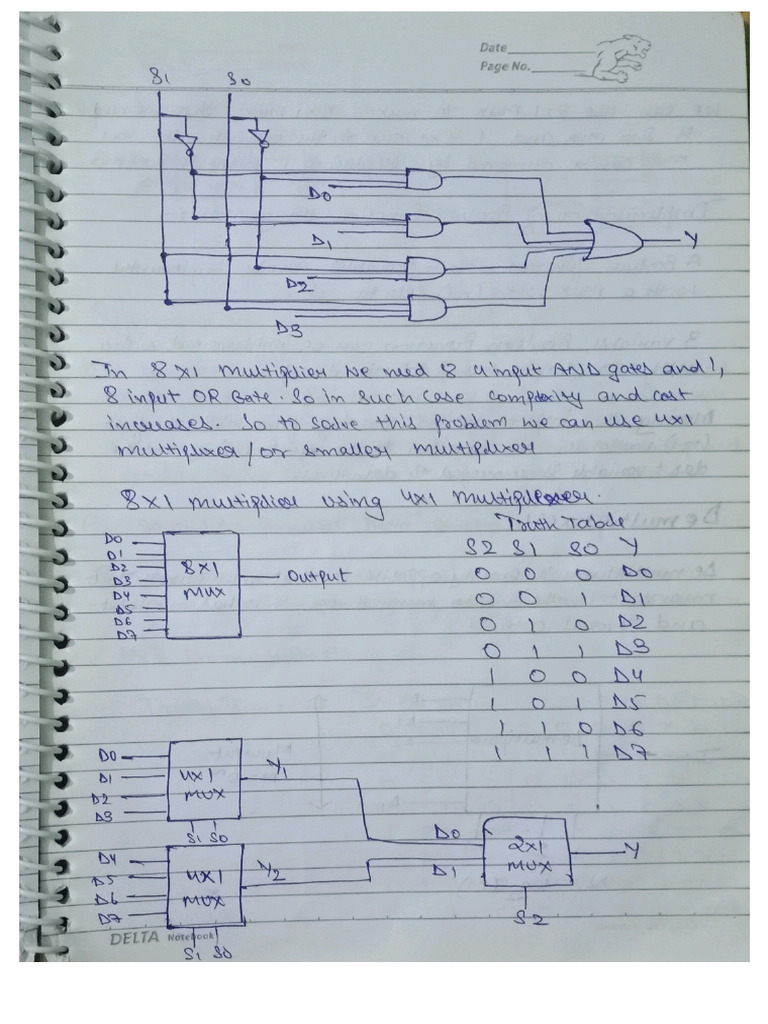 Date
Page No.
S1 S0
D0
D1
Y
D2
D3
In 8x1 multiplier we need 8 4 input AND gates and 1,
8 input OR Gate. So in such case complexity and cost
increases. So to solve this problem we can use 4x1
multiplexer/or smaller multiplexer
8x1 multiplier using 4x1 multiplexer.
Truth Table
S2 S1 S0 Y
0 0 0 D0
0 0 1 D1
0 1 0 D2
0 1 1 D3
1 0 0 D4
1 0 1 D5
1 1 0 D6
1 1 1 D7
D0
D1
D2
D3
D4
D5
D6
D7
8x1
MUX
Output
D0
D1
D2
D3
4x1
MUX
Y1
S1 S0
D4
D5
D6
D7
4x1
MUX
Y2
S1 S0
D0
D1
2x1
MUX
Y
S2
DELTA Notebook